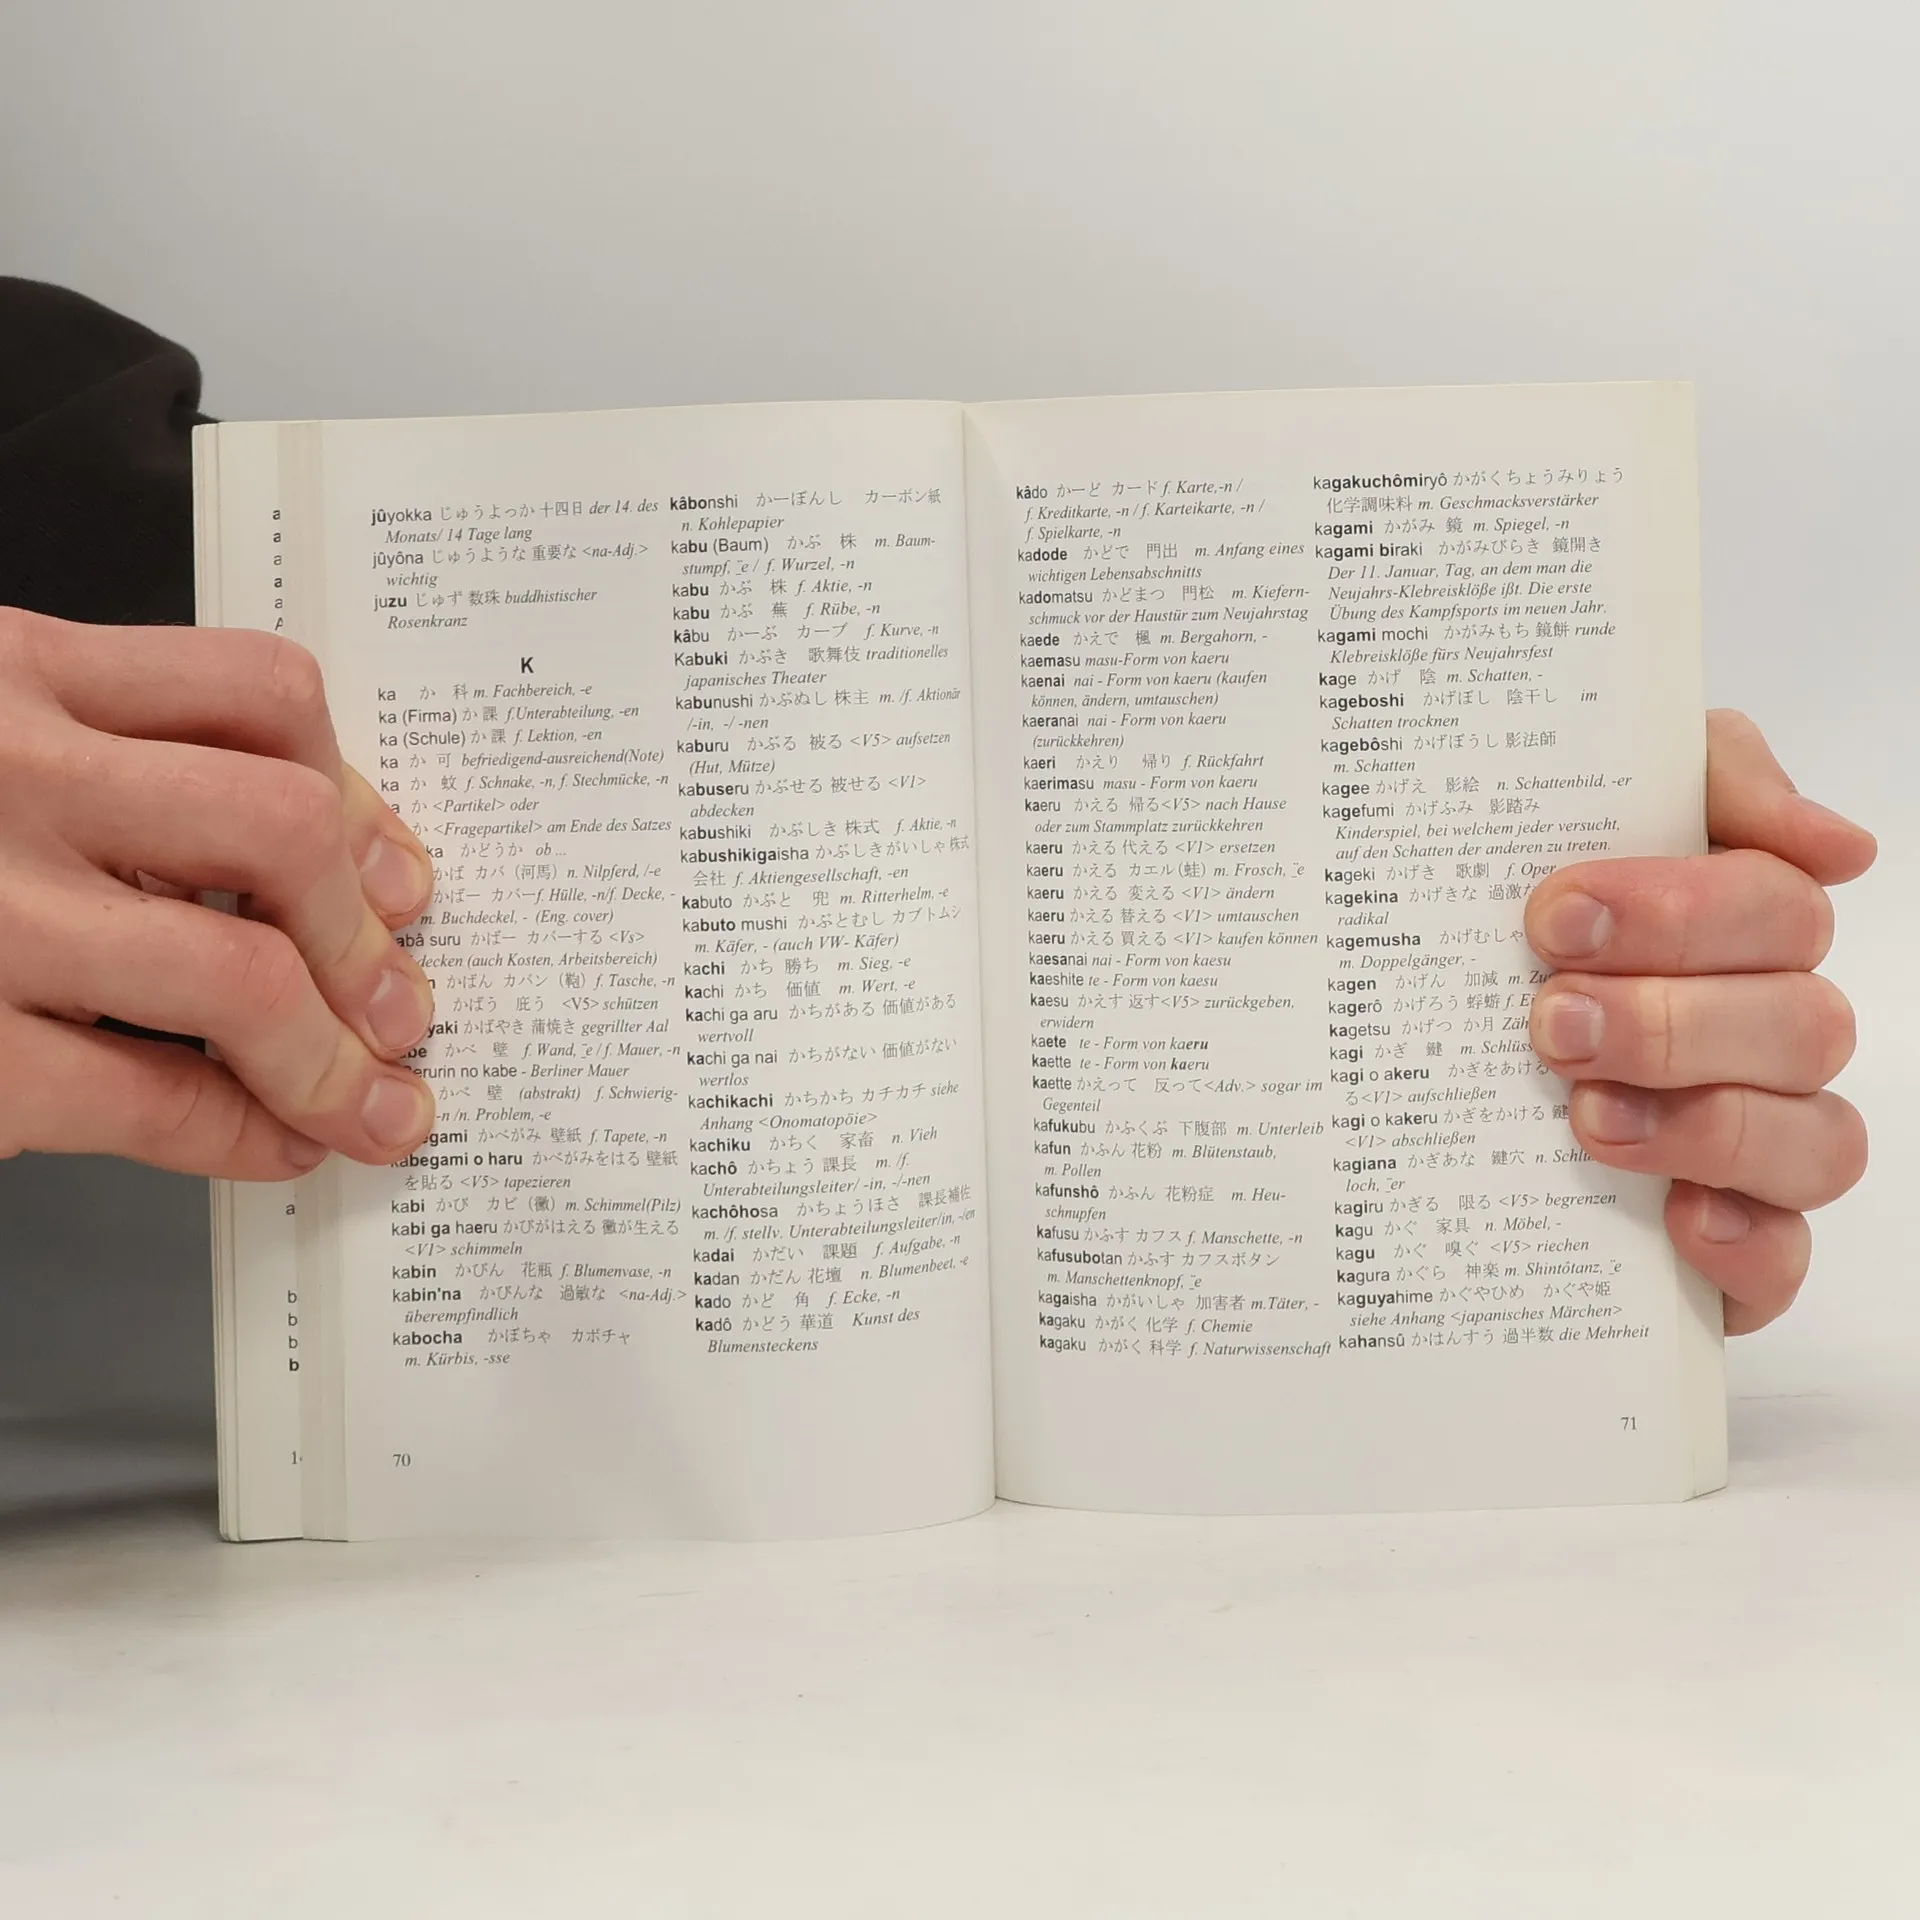 a
a
a
a
a
a
b
b
b
b
jûyokka じゅうよっか 十四日 der 14. des
Monats/ 14 Tage lang
jûyôna じゅうような 重要な <na-Adj.>
wichtig
juzu じゅず 数珠 buddhistischer
Rosenkranz
K
ka か 科 m. Fachbereich, -e
ka (Firma) か 課 f.Unterabteilung, -en
ka (Schule) か 課 f. Lektion, -en
ka か 可 befriedigend-ausreichend(Note)
ka か 蚊 f. Schnake, -n, f. Stechmücke, -n
か <Partikel> oder
か <Fragepartikel> am Ende des Satzes
ka かどうか ob ...
かば カバ (河馬) n. Nilpferd, /-e
かばー カバー f. Hülle, -n/f. Decke, -
m. Buchdeckel, - (Eng. cover)
abâ suru かばー カバーする <Vs>
decken (auch Kosten, Arbeitsbereich)
n かばん カバン (鞄) f. Tasche, -n
かばう 庇う <V5> schützen
yaki かばやき 蒲焼き gegrillter Aal
be かべ 壁 f. Wand, ̈e / f. Mauer, -n
erurin no kabe - Berliner Mauer
かべ 壁 (abstrakt) f. Schwierig-
-n /n. Problem, -e
egami かべがみ 壁紙 f. Tapete, -n
kabegami o haru かべがみをはる 壁紙
を貼る <V5> tapezieren
kabi かび カビ (黴) m. Schimmel(Pilz)
kabi ga haeru かびがはえる 黴が生える
<V1> schimmeln
kabin かびん 花瓶 f. Blumenvase, -n
kabin'na かびんな 過敏な <na-Adj.>
überempfindlich
kabocha かぼちゃ カボチャ
m. Kürbis, -sse
70
kâbonshi かーぼんし カーボン紙
n. Kohlepapier
kabu (Baum) かぶ 株 m. Baum-
stumpf, ̈e / f. Wurzel, -n
kabu かぶ 株 f. Aktie, -n
kabu かぶ 蕪 f. Rübe, -n
kâbu かーぶ カーブ f. Kurve, -n
Kabuki かぶき 歌舞伎 traditionelles
japanisches Theater
kabunushi かぶぬし 株主 m. /f. Aktionär
/-in, -/ -nen
kaburu かぶる 被る <V5> aufsetzen
(Hut, Mütze)
kabuseru かぶせる 被せる <V1>
abdecken
kabushiki かぶしき 株式 f. Aktie, -n
kabushikigaisha かぶしきがいしゃ 株式
会社 f. Aktiengesellschaft, -en
kabuto かぶと 兜 m. Ritterhelm, -e
kabuto mushi かぶとむし カブトムシ
m. Käfer, - (auch VW- Käfer)
kachi かち 勝ち m. Sieg, -e
kachi かち 価値 m. Wert, -e
kachi ga aru かちがある 価値がある
wertvoll
kachi ga nai かちがない 価値がない
wertlos
kachikachi かちかち カチカチ siehe
Anhang <Onomatopöie>
kachiku かちく 家畜 n. Vieh
kachô かちょう 課長 m. /f.
Unterabteilungsleiter/ -in, -/-nen
kachôhosa かちょうほさ 課長補佐
m. /f. stellv. Unterabteilungsleiter/in, -/en
kadai かだい 課題 f. Aufgabe, -n
kadan かだん 花壇 n. Blumenbeet, -e
kado かど 角 f. Ecke, -n
kadô かどう 華道 Kunst des
Blumensteckens
kâdo かーど カード f. Karte,-n /
f. Kreditkarte, -n / f. Karteikarte, -n /
f. Spielkarte, -n
kadode かどで 門出 m. Anfang eines
wichtigen Lebensabschnitts
kadomatsu かどまつ 門松 m. Kiefern-
schmuck vor der Haustür zum Neujahrstag
kaede かえで 楓 m. Bergahorn, -
kaemasu masu-Form von kaeru
kaenai nai - Form von kaeru (kaufen
können, ändern, umtauschen)
kaeranai nai - Form von kaeru
(zurückkehren)
kaeri かえり 帰り f. Rückfahrt
kaerimasu masu - Form von kaeru
kaeru かえる 帰る<V5> nach Hause
oder zum Stammplatz zurückkehren
kaeru かえる 代える <V1> ersetzen
kaeru かえる カエル(蛙) m. Frosch, ̈e
kaeru かえる 変える <V1> ändern
kaeru かえる 替える <V1> umtauschen
kaeru かえる 買える <V1> kaufen können
kaesanai nai - Form von kaesu
kaeshite te - Form von kaesu
kaesu かえす 返す<V5> zurückgeben,
erwidern
kaete te - Form von kaeru
kaette te - Form von kaeru
kaette かえって 反って<Adv.> sogar im
Gegenteil
kafukubu かふくぶ 下腹部 m. Unterleib
kafun かふん 花粉 m. Blütenstaub,
m. Pollen
kafunshô かふん 花粉症 m. Heu-
schnupfen
kafusu かふす カフス f. Manschette, -n
kafusubotan かふす カフスボタン
m. Manschettenknopf, ̈e
kagaisha かがいしゃ 加害者 m.Täter, -
kagaku かがく 化学 f. Chemie
kagaku かがく 科学 f. Naturwissenschaft
kagakuchômiryô かがくちょうみりょう
化学調味料 m. Geschmacksverstärker
kagami かがみ 鏡 m. Spiegel, -n
kagami biraki かがみびらき 鏡開き
Der 11. Januar, Tag, an dem man die
Neujahrs-Klebreisklöße ißt. Die erste
Übung des Kampfsports im neuen Jahr.
kagami mochi かがみもち 鏡餅 runde
Klebreisklöße fürs Neujahrsfest
kage かげ 陰 m. Schatten, -
kageboshi かげぼし 陰干し im
Schatten trocknen
kagebôshi かげぼうし 影法師
m. Schatten
kagee かげえ 影絵 n. Schattenbild, -er
kagefumi かげふみ 影踏み
Kinderspiel, bei welchem jeder versucht,
auf den Schatten der anderen zu treten.
kageki かげき 歌劇 f. Oper
kagekina かげきな 過激な
radikal
kagemusha かげむしゃ
m. Doppelgänger, -
kagen かげん 加減 m.
kagerô かげろう 蜉蝣 f.
kagetsu かげつ か月
kagi かぎ 鍵 m. Schlüss
kagi o akeru かぎをあける
る<V1> aufschließen
kagi o kakeru かぎをかける 鍵
<V1> abschließen
kagiana かぎあな 鍵穴 n.
loch, ̈er
kagiru かぎる 限る <V5> begrenzen
kagu かぐ 家具 n. Möbel, -
kagu かぐ 嗅ぐ <V5> riechen
kagura かぐら 神楽 m. Shintôtanz, ̈e
kaguyahime かぐやひめ かぐや姫
siehe Anhang <japanisches Märchen>
kahansû かはんすう 過半数 die Mehrheit
71